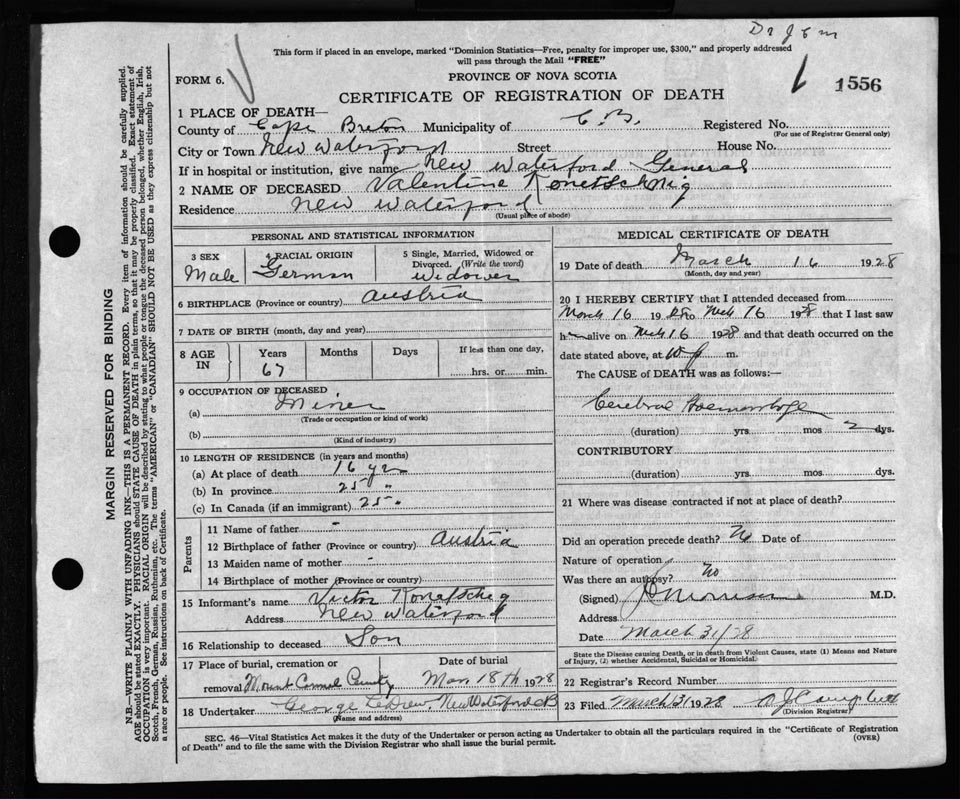 Dr J E M
This form if placed in an envelope, marked "Dominion Statistics—Free, penalty for improper use, $300," and properly addressed
will pass through the Mail "FREE"
FORM 6.
PROVINCE OF NOVA SCOTIA
1556
CERTIFICATE OF REGISTRATION OF DEATH
1 PLACE OF DEATH—
County of Cape Breton Municipality of C.B. Registered No.
(For use of Registrar General only)
City or Town New Waterford Street House No.
If in hospital or institution, give name New Waterford General
2 NAME OF DECEASED Valentine Konetschnig
Residence New Waterford
(Usual place of abode)
PERSONAL AND STATISTICAL INFORMATION
3 SEX Male
4 RACIAL ORIGIN German
5 Single, Married, Widowed or Divorced. (Write the word) widower
6 BIRTHPLACE (Province or country) Austria
7 DATE OF BIRTH (month, day and year)
8 AGE IN Years Months Days If less than one day,
67 hrs. or min.
9 OCCUPATION OF DECEASED
(a) Miner
(Trade or occupation or kind of work)
(b)
(Kind of industry)
10 LENGTH OF RESIDENCE (in years and months)
(a) At place of death 16 yr
(b) In province 25 "
(c) In Canada (if an immigrant) 25 "
Parents
11 Name of father -
12 Birthplace of father (Province or country) Austria
13 Maiden name of mother -
14 Birthplace of mother (Province or country)
15 Informant's name Victor Konatscheg
Address New Waterford
16 Relationship to deceased Son
17 Place of burial, cremation or removal Mount Carmel County
Date of burial Mar 18th 1928
18 Undertaker George LeDrew New Waterford CB
(Name and address)
MEDICAL CERTIFICATE OF DEATH
19 Date of death March 16 1928
(Month, day and year)
20 I HEREBY CERTIFY that I attended deceased from
March 16 1928 to Mch 16 1928 that I last saw
h alive on Mch 16 1928 and that death occurred on the
date stated above, at 10 p m.
The CAUSE of DEATH was as follows:—
Cerebral Haemorrhage
(duration) yrs. mos 2 dys.
CONTRIBUTORY
(duration) yrs. mos. dys.
21 Where was disease contracted if not at place of death?
Did an operation precede death? No Date of
Nature of operation
Was there an autopsy? no
(Signed) Morrison M.D.
Address
Date March 31/28
State the Disease causing Death, or in death from Violent Causes, state (1) Means and Nature
of Injury, (2) whether Accidental, Suicidal or Homicidal.
22 Registrar's Record Number
23 Filed March 31 1928 A J Campbell
(Division Registrar)
SEC. 46—Vital Statistics Act makes it the duty of the Undertaker or person acting as Undertaker to obtain all the particulars required in the "Certificate of Registration
of Death" and to file the same with the Division Registrar who shall issue the burial permit.
(OVER)
MARGIN RESERVED FOR BINDING
N.B.—WRITE PLAINLY WITH UNFADING INK—THIS IS A PERMANENT RECORD. Every item of information should be carefully supplied.
AGE should be stated EXACTLY. PHYSICIANS should STATE CAUSE OF DEATH in plain terms, so that it may be properly classified. Exact statement of
OCCUPATION is very important. RACIAL ORIGIN will be described by stating to what people or tongue the deceased person belonged, whether English, Irish,
Scotch, French, German, Russian, Ruthenian, etc. The terms "AMERICAN" or "CANADIAN" SHOULD NOT BE USED as they express citizenship but not
a race or people. See instructions on back of Certificate.